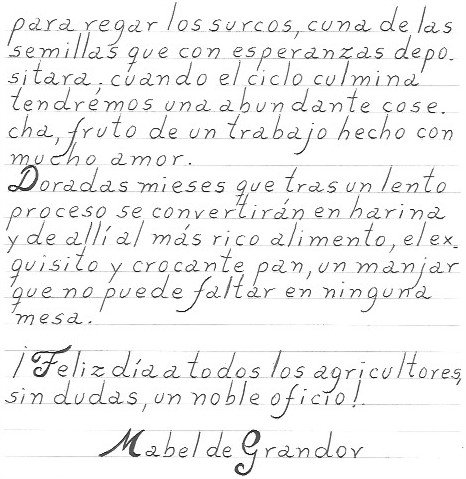 para regar los surcos, cuna de las
semillas que con esperanzas depo-
sitara; cuando el ciclo culmina
tendremos una abundante cose-
cha, fruto de un trabajo hecho con
mucho amor.
Doradas mieses que tras un lento
proceso se convertirán en harina
y de allí al más rico alimento, el ex-
quisito y crocante pan, un manjar
que no puede faltar en ninguna
mesa.
¡Feliz día a todos los agricultores,
sin dudas, un noble oficio!.
Mabel de Grandov